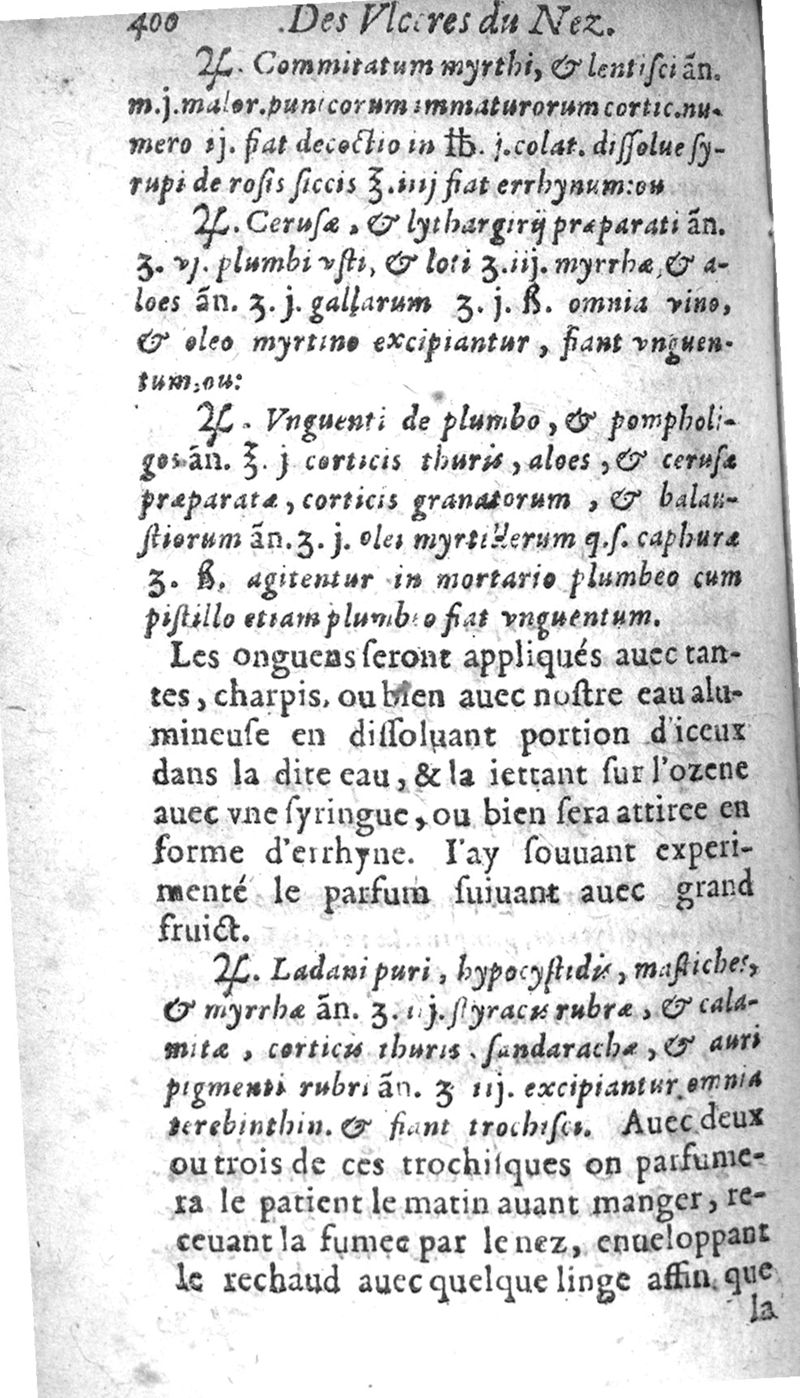 400 Des Vlceres du Nez.
℞. Commitatum myrthi, & lentiſci ān.
m.j.malor.punicorum immaturorum cortic.nu-
mero ij. fiat decoctio in ℔. j.colat. diſſolue ſy-
rupi de roſis ſiccis ℥.iiij fiat errhynum:ou
℞. Ceruſæ, & lythargirij præparati ān.
ʒ. vj. plumbi vſti, & loti ʒ.iij. myrrhæ, & a-
loes ān. ʒ. j. gallarum ʒ. j. ß. omnia vino,
& oleo myrtino excipiantur, fiant vnguen-
tum,ou:
℞. Vnguenti de plumbo, & pompholi-
gos ān. ℥. j corticis thuris, aloes, & ceruſæ
præparatæ, corticis granatorum, & balau-
ſtiorum ān.ʒ. j. olei myrtillorum q.ſ. caphuræ
ʒ. ß. agitentur in mortario plumbeo cum
piſtillo etiam plumbeo fiat vnguentum.
Les onguens ſeront appliqués auec tan-
tes, charpis, ou bien auec noſtre eau alu-
mineuſe en diſſoluant portion d'iceux
dans la dite eau, & la iettant ſur l'ozene
auec vne ſyringue, ou bien ſera attiree en
forme d'errhyne. I'ay ſouuant experi-
menté le parfum ſuiuant auec grand
fruict.
℞. Ladani puri, hypocyſtidis, maſtiches,
& myrrhæ ān. ʒ. ij. ſtyracis rubræ, & cala-
mitæ, corticis thuris, ſandarachæ, & auri
pigmenti rubri ān. ʒ iij. excipiantur omnia
terebinthin. & fiant trochiſci. Auec deux
ou trois de ces trochiſques on parfume-
ra le patient le matin auant manger, re-
ceuant la fumee par le nez, enueloppant
le rechaud auec quelque linge affin que
la